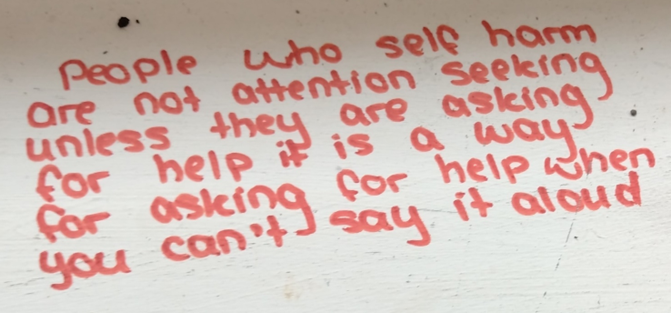 People who self harm
are not attention seeking
unless they are asking
for help it is a way
for asking for help when
you can't say it aloud